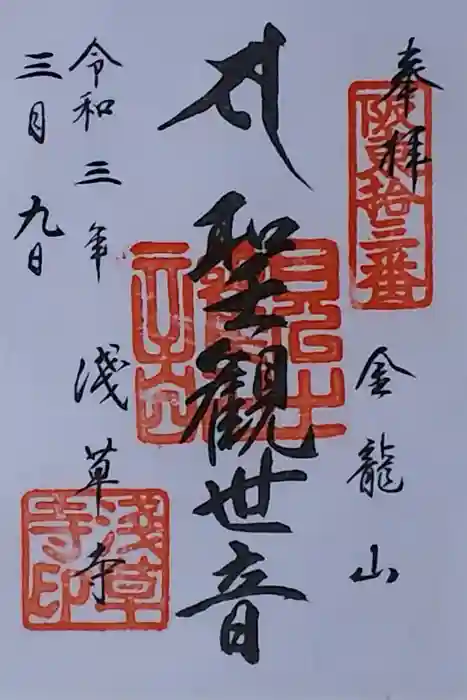 奉拝
坂東拾三番
金龍山
聖観世音
令和三年
三月九日
浅草寺
浅草寺印